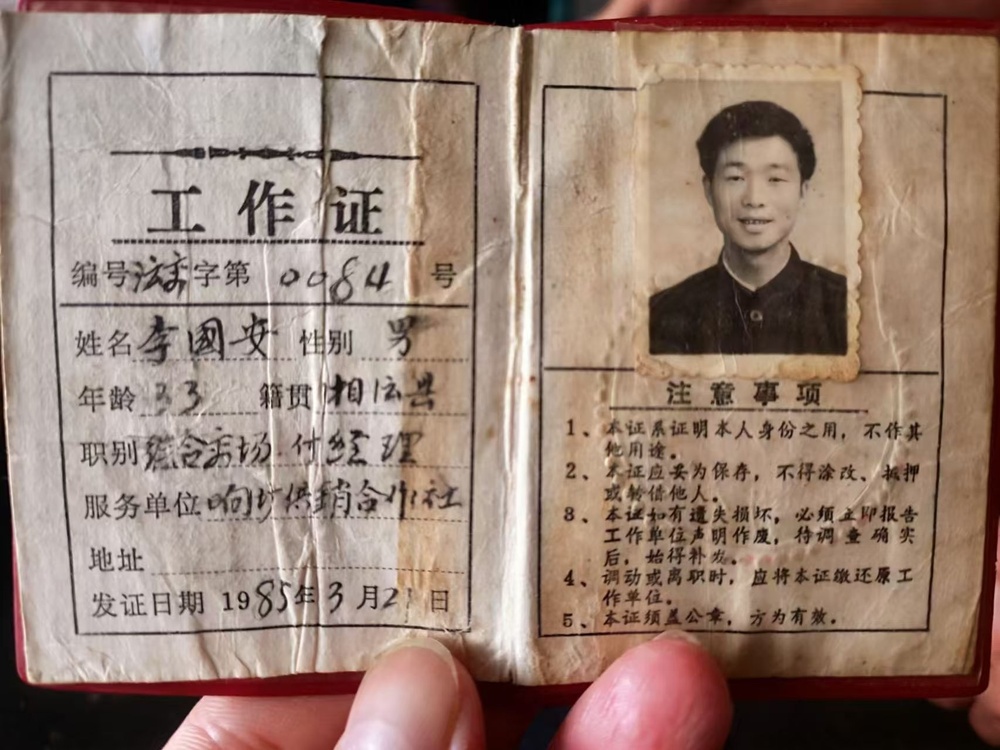 工作证
编号 字第 0084 号
姓名 李國安 性别 男
年龄 33 籍贯 相 县
职别 综合商场付经理
服务单位 响 供销合作社
地址
发证日期 1985年3月2 日
注意事项
1、本证系证明本人身份之用，不作其
他用途。
2、本证应妥为保存，不得涂改、抵押
或转借他人。
3、本证如有遗失损坏，必须立即报告
工作单位声明作废，待调查确实
后，始得补发。
4、调动或离职时，应将本证缴还原工
作单位。
5、本证须盖公章，方为有效。